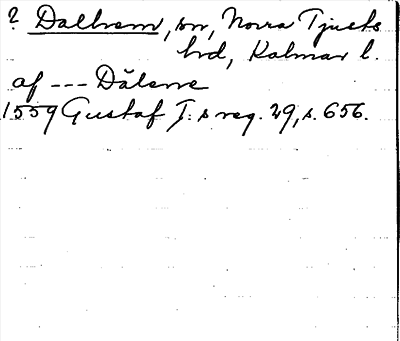 ? Dalhem, sn, Norra Tjusts
hd, Kalmar l.
af --- Dălerne
1559 Gustaf I:s reg. 29, s. 656.